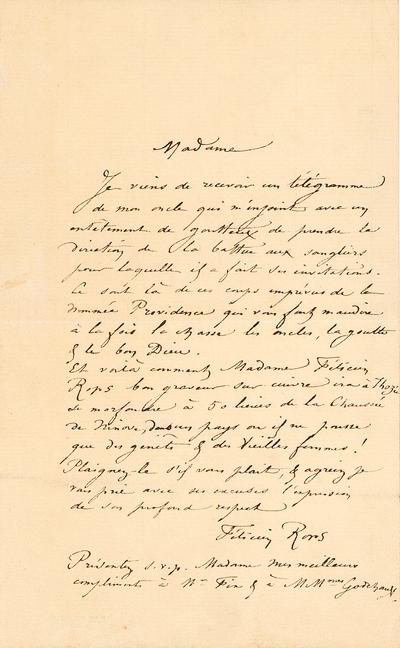 Madame
Je viens de recevoir un télégramme
de mon oncle qui m'enjoint avec un
entêtement de goutteux de prendre la
direction de la battue aux sangliers
pour laquelle il a fait ses invitations.
Ce sont là de ces coups imprévus de la
Providence qui vous font maudire
à la fois la chasse les oncles, la goutte
& le bon Dieu.
Et voilà comment Madame Félicien
Rops bon graveur sur cuivre ira à
se morfondre à 50 lieues de la Chaussée
de Ninove, dans un pays où il ne pousse
que des genêts & des vieilles femmes !
Plaignez-le s'il vous plait, & agréez je
vous prie avec ses excuses l'expression
de son profond respect
Félicien Rops
Présentez s.v.p. Madame mes meilleurs
compliments à & à